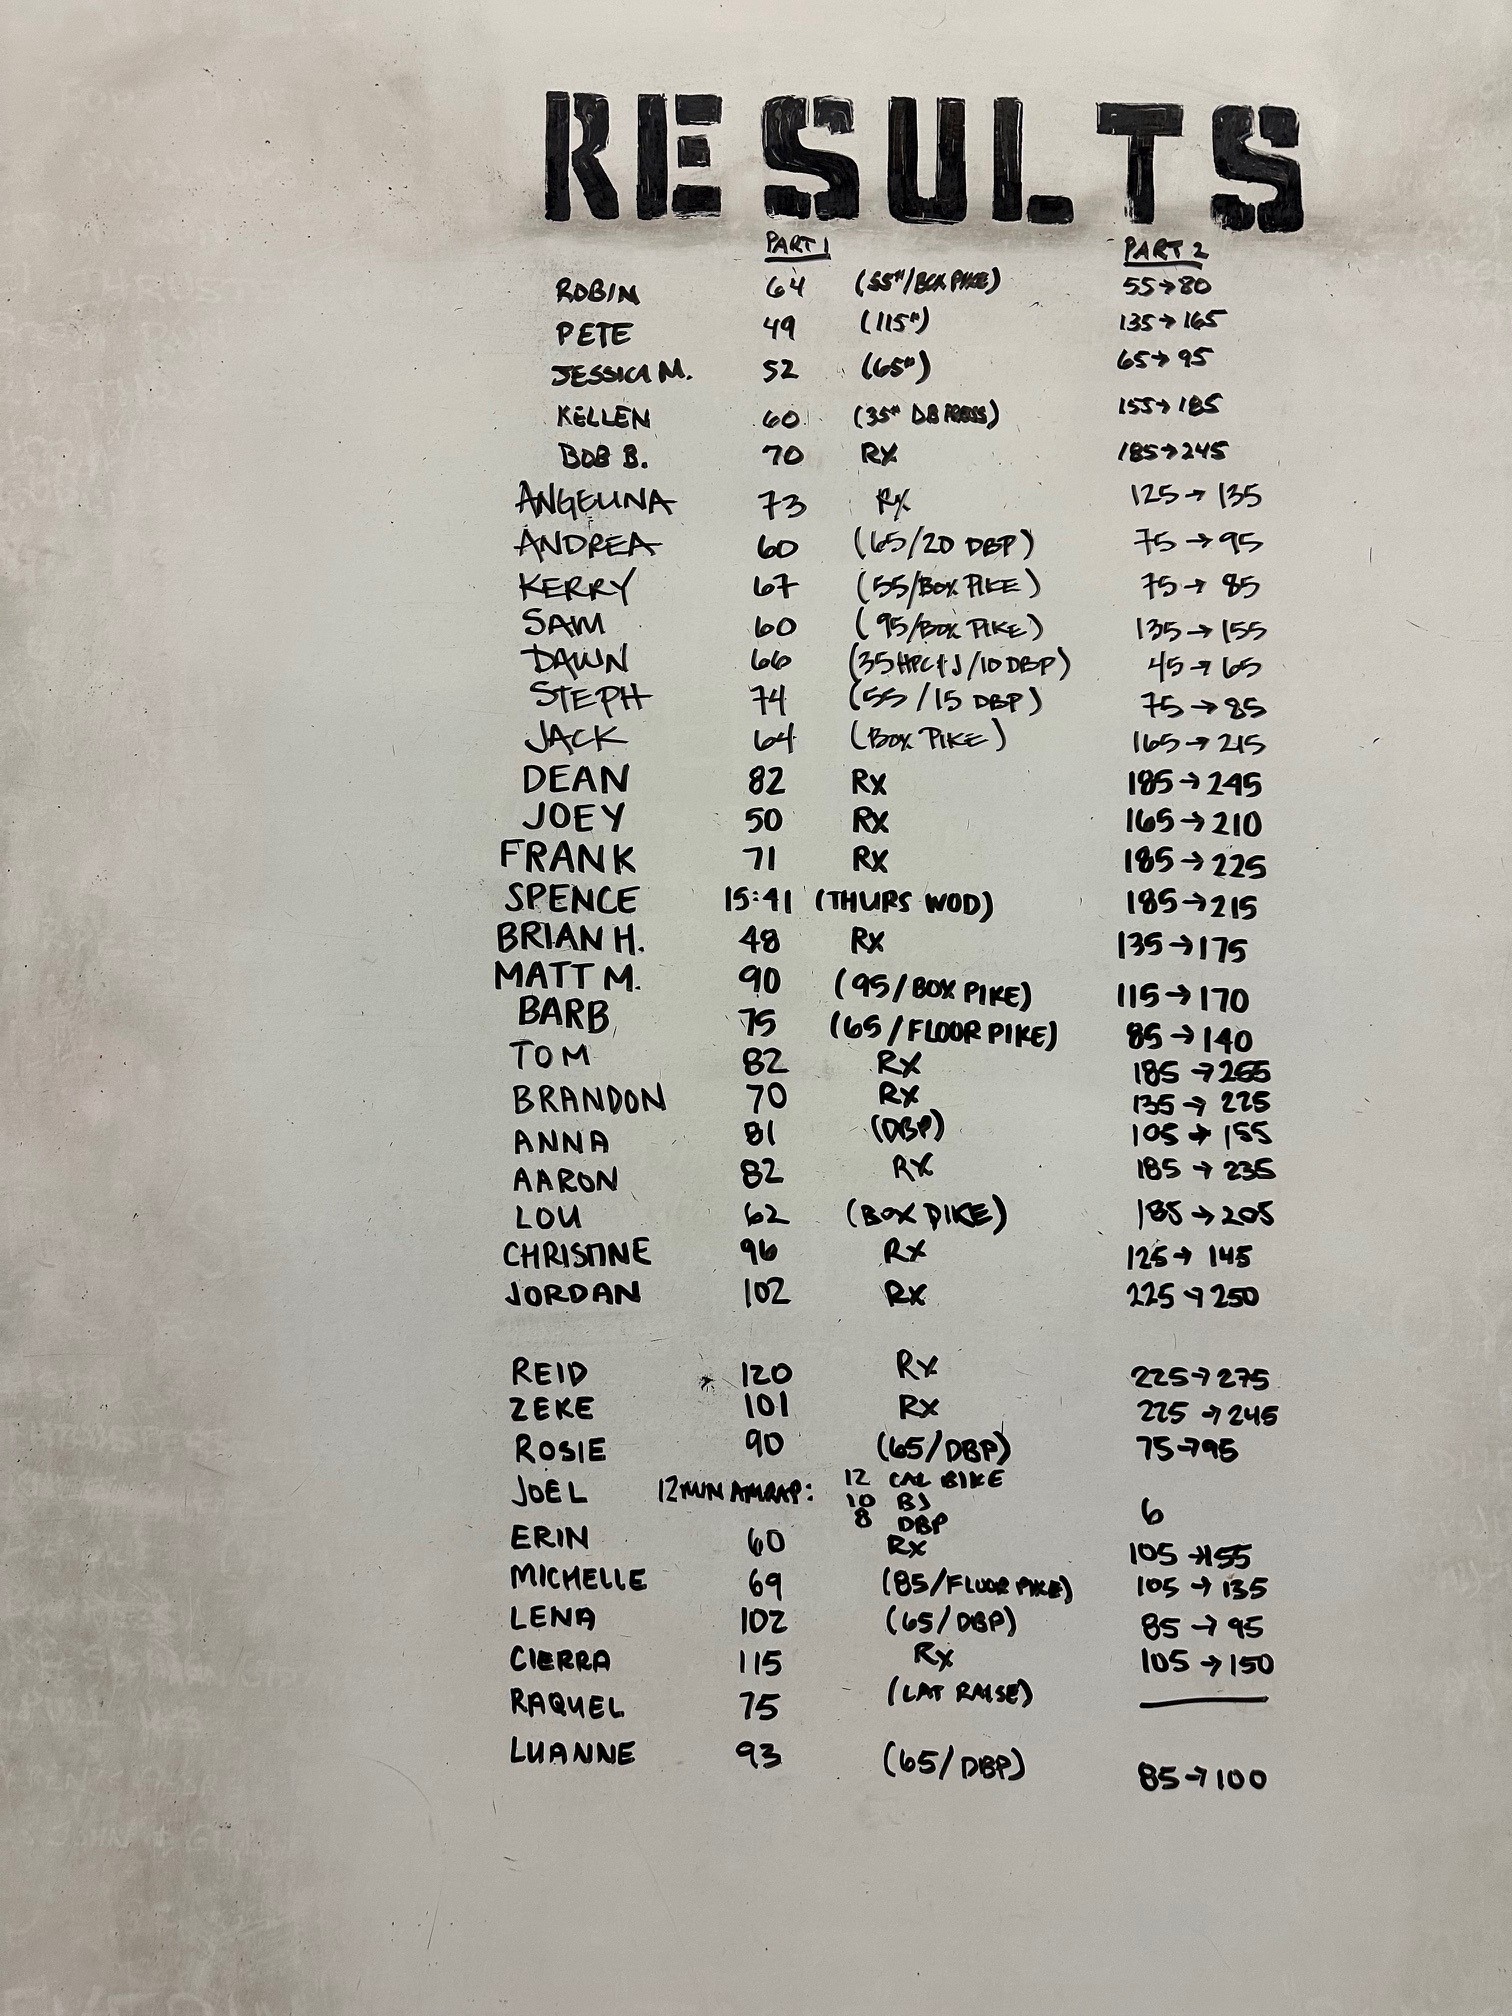 RESULTS
PART 1 PART 2
ROBIN 64 (55#/BOX PIKE) 55→80
PETE 49 (115#) 135→165
JESSICA M. 52 (65#) 65→95
KELLEN 60 (35# DB PRESS) 155→185
BOB B. 70 Rx 185→245
ANGELINA 73 Rx 125→135
ANDREA 60 (65/20 DBP) 75→95
KERRY 67 (55/BOX PIKE) 75→85
SAM 60 (95/BOX PIKE) 135→155
DAWN 66 (35 HPC+J/10 DBP) 45→65
STEPH 74 (55/15 DBP) 75→85
JACK 64 (BOX PIKE) 165→215
DEAN 82 Rx 185→245
JOEY 50 Rx 165→210
FRANK 71 Rx 185→225
SPENCE 15:41 (THURS WOD) 185→215
BRIAN H. 48 Rx 135→175
MATT M. 90 (95/BOX PIKE) 115→170
BARB 75 (65/FLOOR PIKE) 85→140
TOM 82 Rx 185→255
BRANDON 70 Rx 135→225
ANNA 81 (DBP) 105→155
AARON 82 Rx 185→235
LOU 62 (BOX PIKE) 185→205
CHRISTINE 96 Rx 125→145
JORDAN 102 Rx 225→250
REID 120 Rx 225→275
ZEKE 101 Rx 225→245
ROSIE 90 (65/DBP) 75→95
JOEL 12 MIN AMRAP: 12 CAL BIKE
10 BJ 6
8 DBP
ERIN 60 Rx 105→155
MICHELLE 69 (85/FLOOR PIKE) 105→135
LENA 102 (65/DBP) 85→95
CIERRA 115 Rx 105→150
RAQUEL 75 (LAT RAISE) —
LUANNE 93 (65/DBP) 85→100